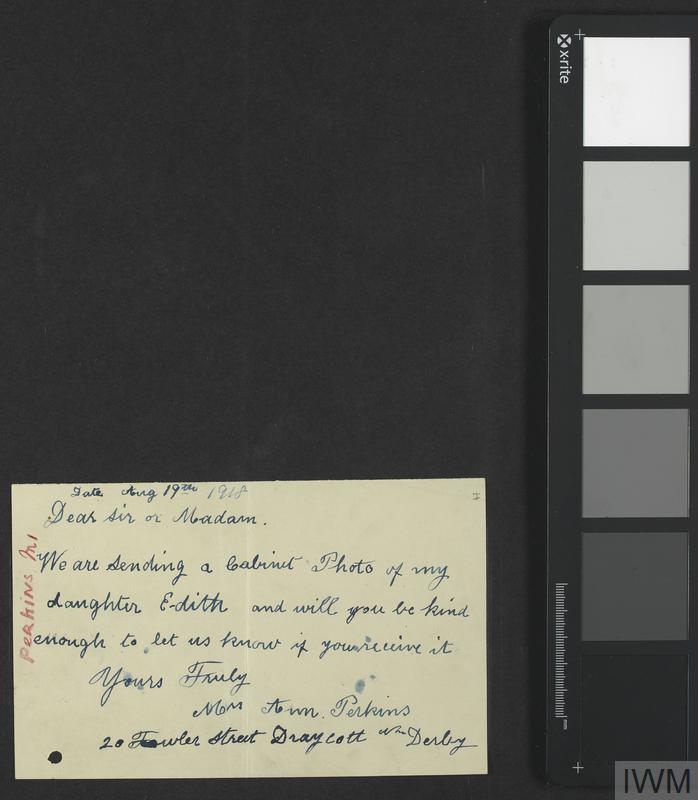 Date Aug 19th 1918
Dear Sir or Madam.
We are sending a Cabinet Photo of my
daughter Edith and will you be kind
enough to let us know if you receive it
Yours Truly
Mrs Ann. Perkins
20 Fowler Street Draycott Nr Derby
PERKINS
x-rite
mm
IWM